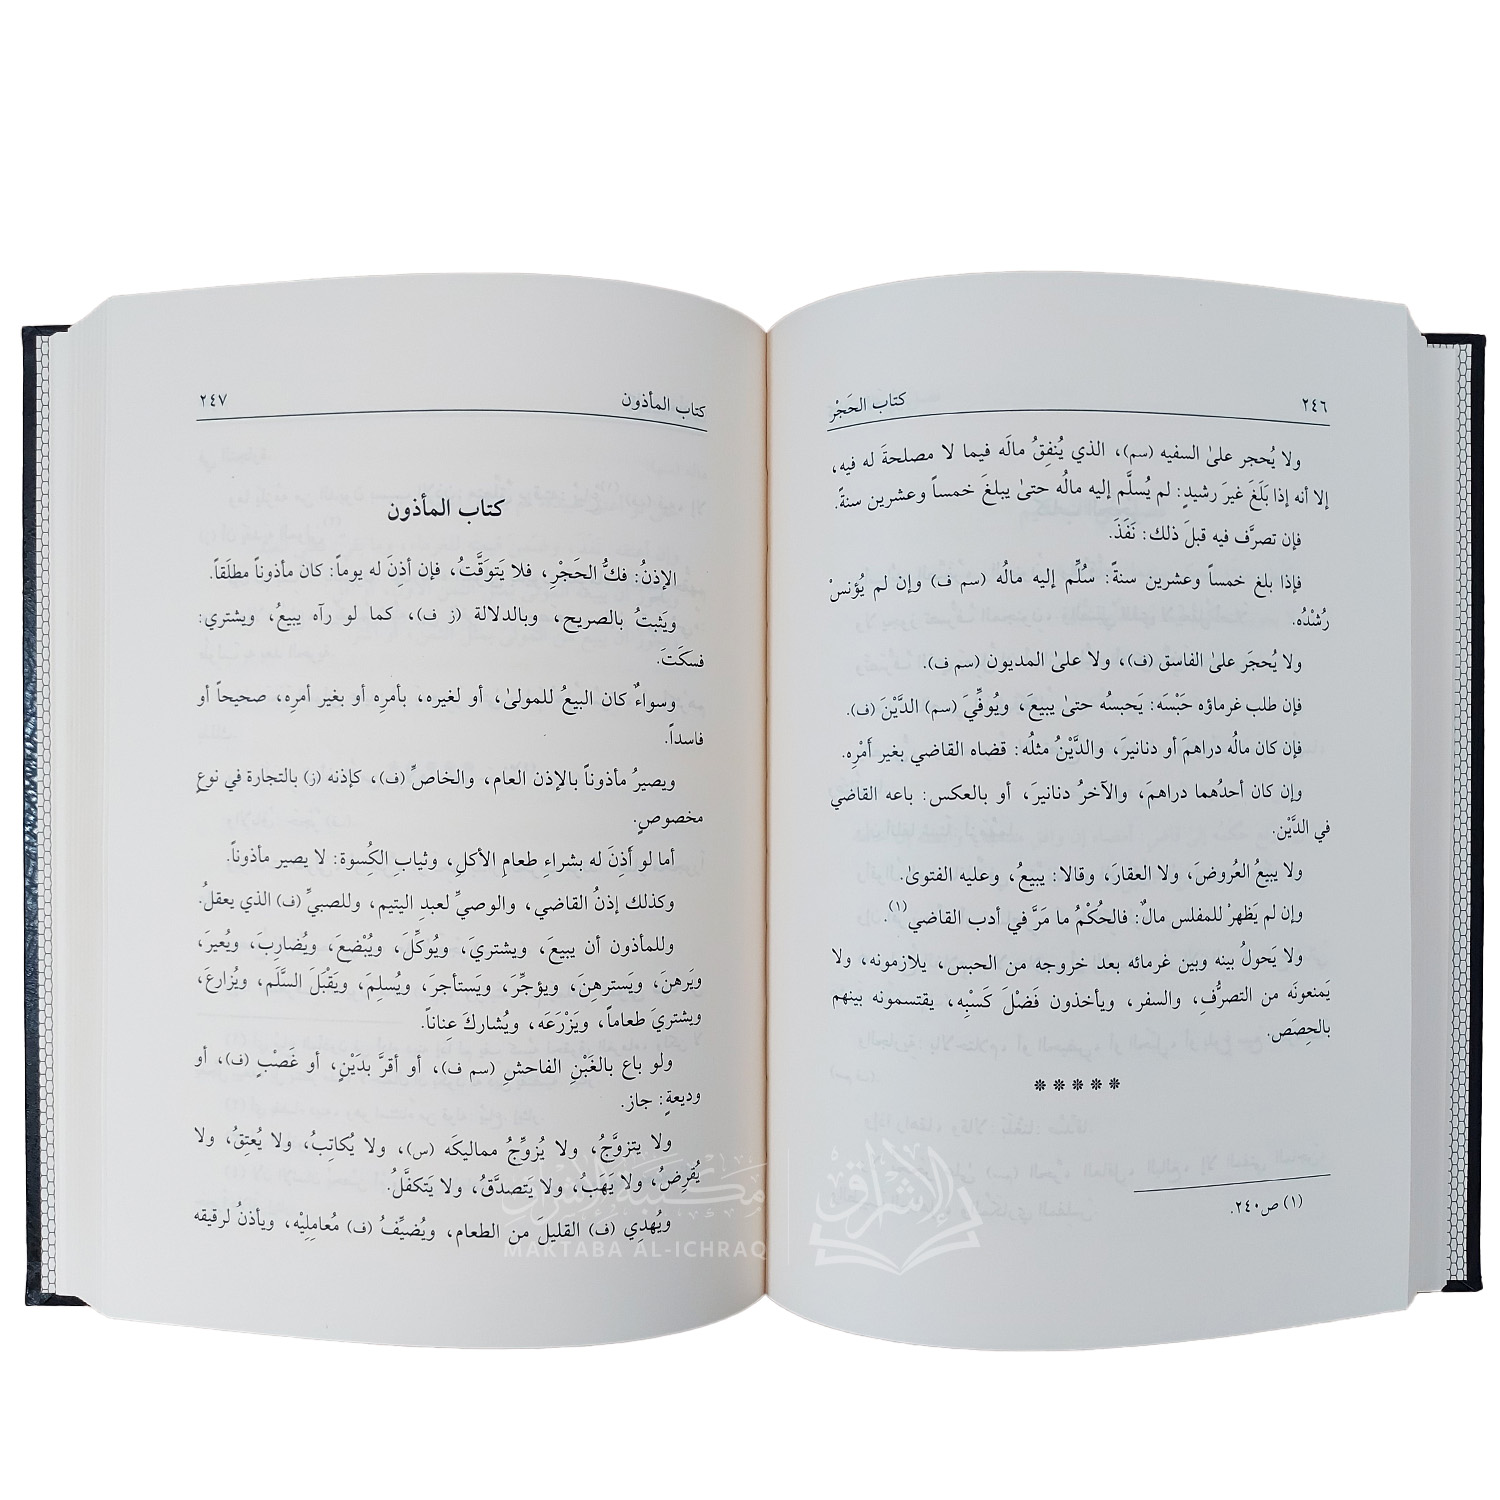 ٢٤٦
كتاب الحَجْر
ولا يُحجر علىٰ السفيه (سم)، الذي يُنفِقُ مالَه فيما لا مصلحةَ له فيه،
إلا أنه إذا بَلَغَ غيرَ رشيدٍ: لم يُسلَّم إليه مالُه حتىٰ يبلغَ خمساً وعشرين سنةً.
فإن تصرَّف فيه قبلَ ذلك: نَفَذَ.
فإذا بلغ خمساً وعشرين سنةً: سُلِّم إليه مالُه (سم ف) وإن لم يُؤنسْ
رُشْدُه.
ولا يُحجَر علىٰ الفاسق (ف)، ولا علىٰ المديون (سم ف).
فإن طلب غرماؤه حَبْسَه: يَحبسُه حتىٰ يبيعَ، ويُوفِّيَ (سم) الدَّيْنَ (ف).
فإن كان مالُه دراهمَ أو دنانيرَ، والدَّيْنُ مثلُه: قضاه القاضي بغير أَمْرِه.
وإن كان أحدُهما دراهمَ، والآخرُ دنانيرَ، أو بالعكس: باعه القاضي
في الدَّيْن.
ولا يبيعُ العُروضَ، ولا العقارَ، وقالا: يبيعُ، وعليه الفتوىٰ.
وإن لم يَظهرْ للمفلس مالٌ: فالحُكْمُ ما مَرَّ في أدب القاضي(١).
ولا يَحولُ بينه وبين غرمائه بعد خروجه من الحبس، يلازمونه، ولا
يَمنعونَه من التصرُّفِ، والسفر، ويأخذون فَضْلَ كَسْبِه، يقتسمونه بينهم
بالحِصَص.
*****
(١) ص٢٤٠.
كتاب المأذون
٢٤٧
كتاب المأذون
الإذنُ: فكُّ الحَجْرِ، فلا يَتوَقَّتُ، فإن أذِنَ له يوماً: كان مأذوناً مطلَقاً.
ويَثبتُ بالصريح، وبالدلالة (ز ف)، كما لو رآه يبيعُ، ويشتري:
فسكَتَ.
وسواءٌ كان البيعُ للمولىٰ، أو لغيره، بأمرِه أو بغير أمرِه، صحيحاً أو
فاسداً.
ويصيرُ مأذوناً بالإذن العام، والخاصِّ (ف)، كإذنه (ز) بالتجارة في نوعٍ
مخصوصٍ.
أما لو أَذِنَ له بشراء طعامِ الأكلِ، وثيابِ الكِسوة: لا يصير مأذوناً.
وكذلك إذنُ القاضي، والوصيِّ لعبدِ اليتيم، وللصبيِّ (ف) الذي يعقلُ.
وللمأذون أن يبيعَ، ويشتريَ، ويُوكِّلَ، ويُبْضِعَ، ويُضارِبَ، ويُعيرَ،
ويَرهنَ، ويَسترهِنَ، ويؤجِّرَ، ويَستأجرَ، ويُسلِمَ، ويَقْبَلَ السَّلَم، ويُزارعَ،
ويشتريَ طعاماً، ويَزْرَعَه، ويُشاركَ عِناناً.
ولو باع بالغَبْنِ الفاحشِ (سم ف)، أو أقرَّ بدَيْنٍ، أو غَصْبٍ (ف)، أو
وديعةٍ: جاز.
ولا يتزوَّجُ، ولا يُزوِّجُ مماليكَه (س)، ولا يُكاتِبُ، ولا يُعتِقُ، ولا
يُقرِضُ، ولا يَهَبُ، ولا يَتصدَّقُ، ولا يَتكفَّلُ.
ويُهدِي (ف) القليلَ من الطعام، ويُضيِّفُ (ف) مُعامِلِيْه، ويأذنُ لرقيقه
مكتبة الإشراق
MAKTABA AL-ICHRAQ
الإشراق